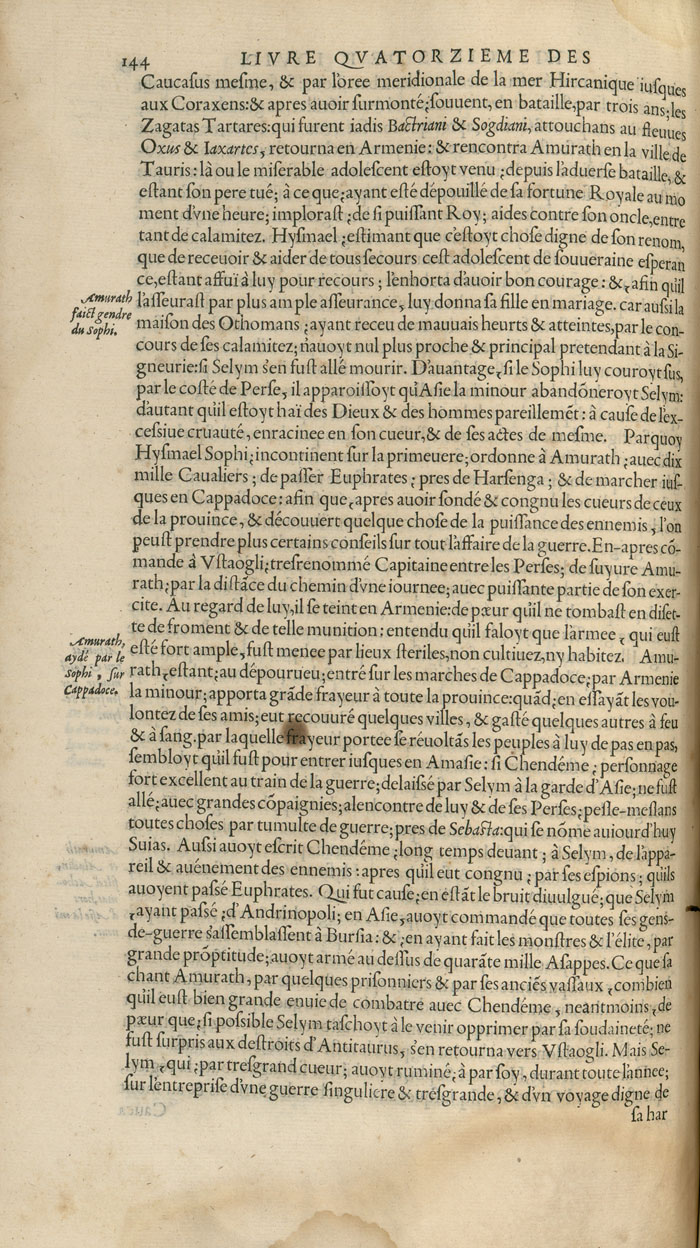 144 LIVRE QVATORZIEME DES
Caucaſus meſme, & par l'oree meridionale de la mer Hircanique iuſques
aux Coraxens:& apres auoir ſurmonté;ſouuent, en bataille,par trois ans;les
Zagatas Tartares:qui furent iadis Bactriani & Sogdiani, attouchans au fleuues
Oxus & Iaxartes, retourna en Armenie: & rencontra Amurath en la ville de
Tauris: là ou le miſerable adoleſcent eſtoyt venu ;depuis l'aduerſe bataille, &
eſtant ſon pere tué; à ce que;ayant eſté dépouillé de ſa fortune Royale au mo
ment d'vne heure; imploraſt ;de ſi puiſſant Roy; aides contre ſon oncle,entre
tant de calamitez. Hyſmael ;eſtimant que c'eſtoyt choſe digne de ſon renom,
que de receuoir & aider de tous ſecours ceſt adoleſcent de ſouueraine eſperan
ce,eſtant affuï à luy pour recours ; l'enhorta d'auoir bon courage : & , afin qu'il
Amurath
faict gendre
du Sophi.
l'aſſeuraſt par plus ample aſſeurance, luy donna ſa fille en mariage. car auſsi la
maiſon des Othomans ;ayant receu de mauuais heurts & atteintes,par le con-
cours de ſes calamitez; n'auoyt nul plus proche & principal pretendant à la Si-
gneurie:ſi Selym s'en fuſt allé mourir. D'auantage, ſi le Sophi luy couroyt ſus,
par le coſté de Perſe, il apparoiſſoyt qu'Aſie la minour abandõneroyt Selym:
d'autant qu'il eſtoyt haï des Dieux & des hommes pareillemẽt: à cauſe de l'ex-
ceſsiue cruauté, enracinee en ſon cueur,& de ſes actes de meſme. Parquoy
Hyſmael Sophi;incontinent ſur la primeuere;ordonne à Amurath ;auec dix
mille Caualiers ; de paſſer Euphrates ; pres de Harſenga ; & de marcher iuſ-
ques en Cappadoce: afin que, apres auoir ſondé & congnu les cueurs de ceux
de la prouince, & découuert quelque choſe de la puiſſance des ennemis, l'on
peuſt prendre plus certains conſeils ſur tout l'affaire de la guerre.En-apres cõ-
mande à Vſtaogli;treſrenommé Capitaine entre les Perſes; de ſuyure Amu-
rath;par la diſtãce du chemin d'vne iournee;auec puiſſante partie de ſon exer-
cite. Au regard de luy,il ſe teint en Armenie:de pœur qu'il ne tombaſt en diſet-
te de froment & de telle munition: entendu qu'il faloyt que l'armee , qui euſt
Amurath,
aydé par le
Sophi , ſur
Cappadoce.
eſté fort ample,fuſt menee par lieux ſteriles,non cultiuez,ny habitez. Amu-
rath,eſtant;au dépourueu;entré ſur les marches de Cappadoce;par Armenie
la minour;apporta grãde frayeur à toute la prouince:quãd;en eſſayãt les vou-
lontez de ſes amis;eut recouuré quelques villes, & gaſté quelques autres à feu
& à ſang.par laquelle frayeur portee ſe réuoltãs les peuples à luy de pas en pas,
ſembloyt qu'il fuſt pour entrer iuſques en Amaſie: ſi Chendéme ; perſonnage
fort excellent au train de la guerre;delaiſſé par Selym à la garde d'Aſie; ne fuſt
allé;auec grandes cõpaignies;alencontre de luy & de ſes Perſes; peſle-meſlans
toutes choſes par tumulte de guerre;pres de Sebaſta:qui ſe nõme auiourd'huy
Suias. Auſsi auoyt eſcrit Chendéme ;long temps deuant ; à Selym, de l'appa-
reil & auénement des ennemis : apres qu'il eut congnu ; par ſes eſpions ; qu'ils
auoyent paſſé Euphrates. Qui fut cauſe;en eſtãt le bruit diuulgué;que Selym
,ayant paſſé ;d'Andrinopoli; en Aſie,auoyt commandé que toutes ſes gens-
de-guerre s'aſſemblaſſent à Burſia: & ;en ayant fait les monſtres & l'élite, par
grande prõptitude;auoyt armé au deſſus de quarãte mille Aſappes.Ce que ſa
chant Amurath, par quelques priſonniers & par ſes anciẽs vaſſaux ,combien
qu'il euſt bien grande enuie de combatre auec Chendéme, neantmoins ,de
pœur que;ſi poſsible Selym taſchoyt à le venir opprimer par ſa ſoudaineté; ne
fuſt ſurpris aux deſtroits d'Antitaurus, s'en retourna vers Vſtaogli. Mais Se-
lym ,qui ;par treſgrand cueur; auoyt ruminé;à par ſoy, durant toute l'annee;
ſur l'entrepriſe d'vne guerre ſinguliere & treſgrande, & d'vn voyage digne de
ſa har